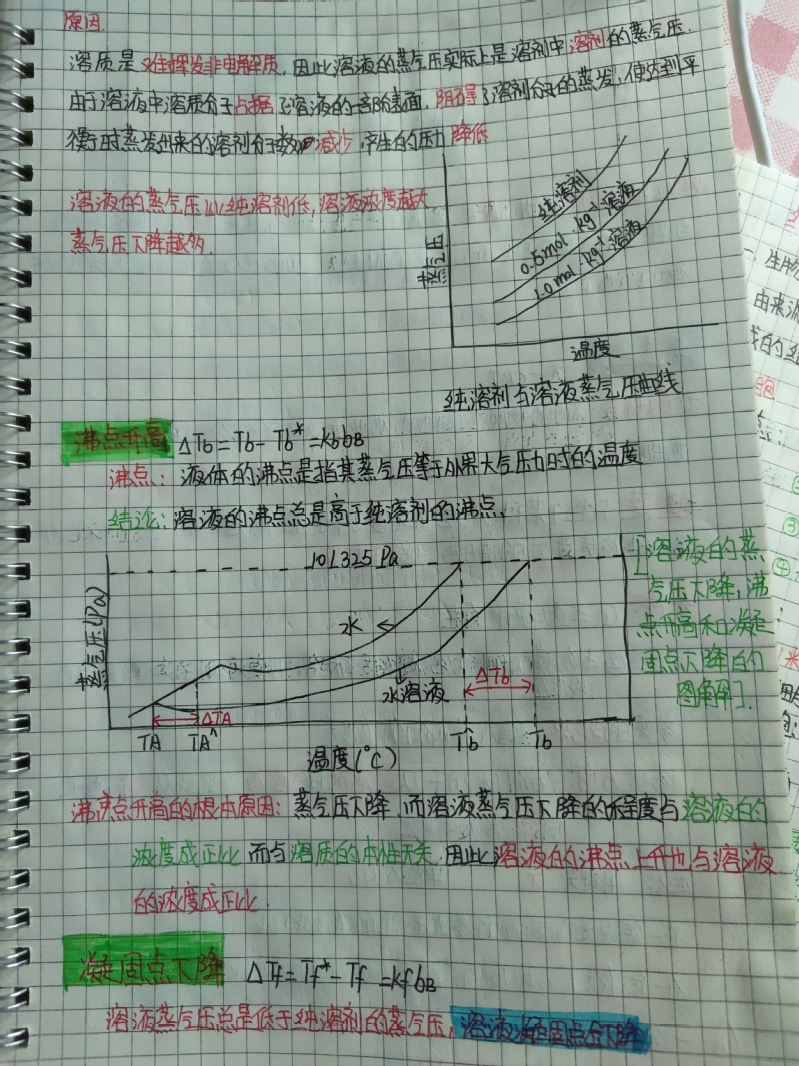 原因.
溶质是难挥发非电解质,因此溶液的蒸气压实际上是溶剂中溶剂的蒸气压.
由于溶液中溶质分子占据了溶液的一部分表面,阻碍了溶剂分子的蒸发,使达到平
衡时蒸发出来的溶剂分子数减少,产生的压力降低
溶液的蒸气压比纯溶剂低,溶液浓度越大
蒸气压下降越多.
蒸气压
纯溶剂
0.5mol·kg⁻¹溶液
1.0mol·kg⁻¹溶液
温度
纯溶剂与溶液蒸气压曲线
沸点升高 ΔTb=Tb-Tb*=KbbB
沸点:液体的沸点是指其蒸气压等于外界大气压力时的温度
结论:溶液的沸点总是高于纯溶剂的沸点.
蒸气压(Pa)
101325Pa
水
水溶液
ΔTb
ΔTA
TA
TA^
温度(℃)
Tb^
Tb
[溶液的蒸
气压下降,沸
点升高和凝
固点下降的
图解].
沸点升高的根本原因:蒸气压下降,而溶液蒸气压下降的程度与溶液的
浓度成正比而与溶质的本性无关.因此溶液的沸点上升也与溶液
的浓度成正比.
凝固点下降 ΔTf=Tf*-Tf=KfbB
溶液蒸气压总是低于纯溶剂的蒸气压,溶液凝固点会下降